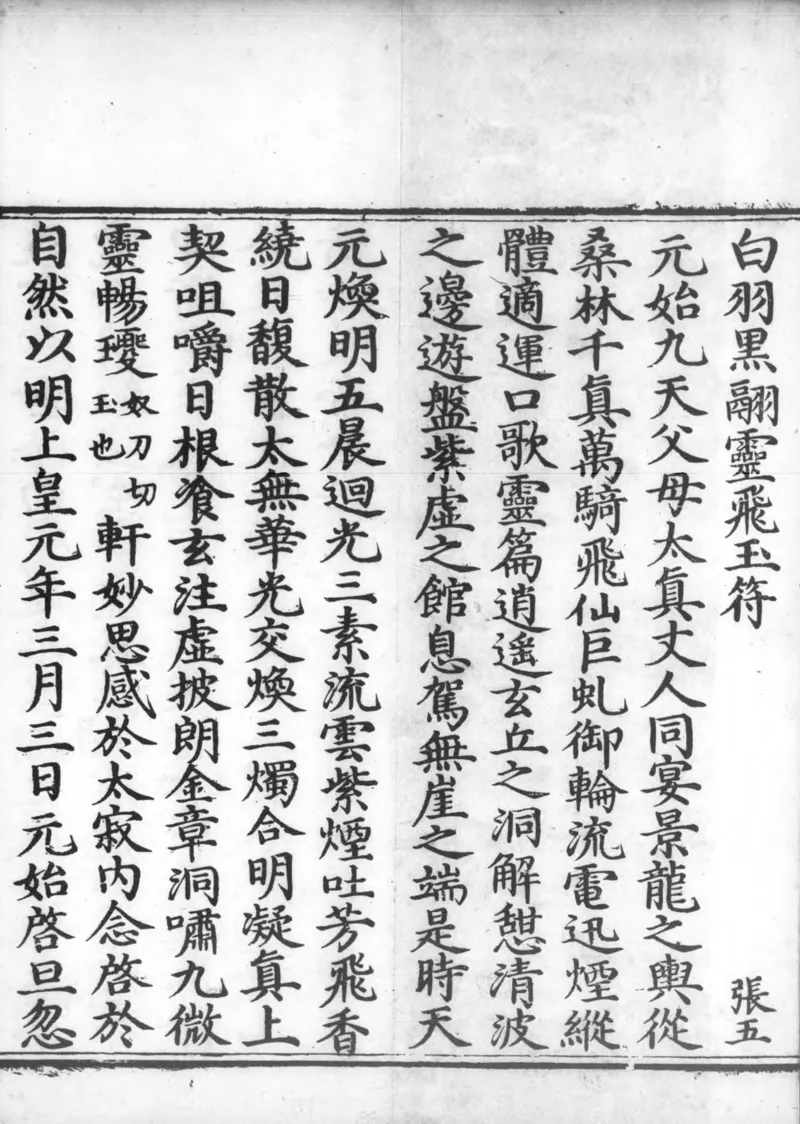 白羽黑翮靈飛玉符
張五
元始九天父母太眞丈人同宴景龍之輿從
桑林千眞萬騎飛仙巨虬御輪流電迅煙縱
體適運口歌靈篇逍遙玄丘之洞解憇清波
之邊遊盤紫虛之館息駕無崖之端是時天
元煥明五晨迴光三素流雲紫煙吐芳飛香
繞日馥散太無華光交煥三燭合明凝眞上
契咀嚼日根飡玄注虛披朗金章洞嘯九微
靈暢瓊奴刀切玉也軒妙思感於太寂內念啓於
自然以明上皇元年三月三日元始啓旦忽